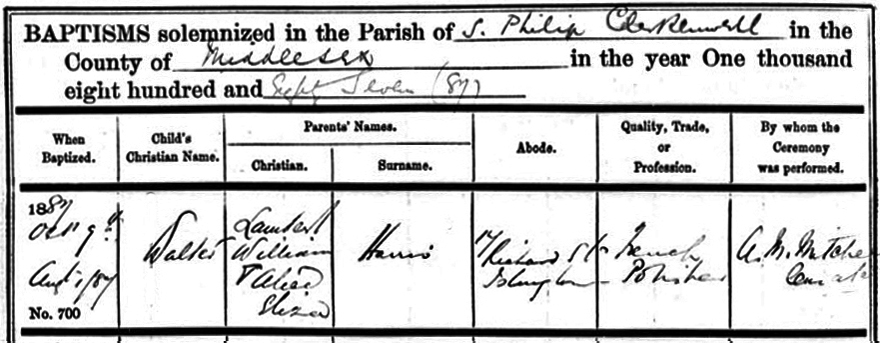 BAPTISMS solemnized in the Parish of S. Philip Clerkenwell in the
County of Middlesex in the year One thousand
eight hundred and Eighty Seven (87)
When Baptized.
Child's Christian Name.
Parents' Names.
Christian.
Surname.
Abode.
Quality, Trade, or Profession.
By whom the Ceremony was performed.
1887
Oct 9th
Aug 1/87
No. 700
Walter
Lambert
William
& Alice
Eliza
Harris
17
Richard St
Islington
French
Polisher
A. M. Mitche
Curate